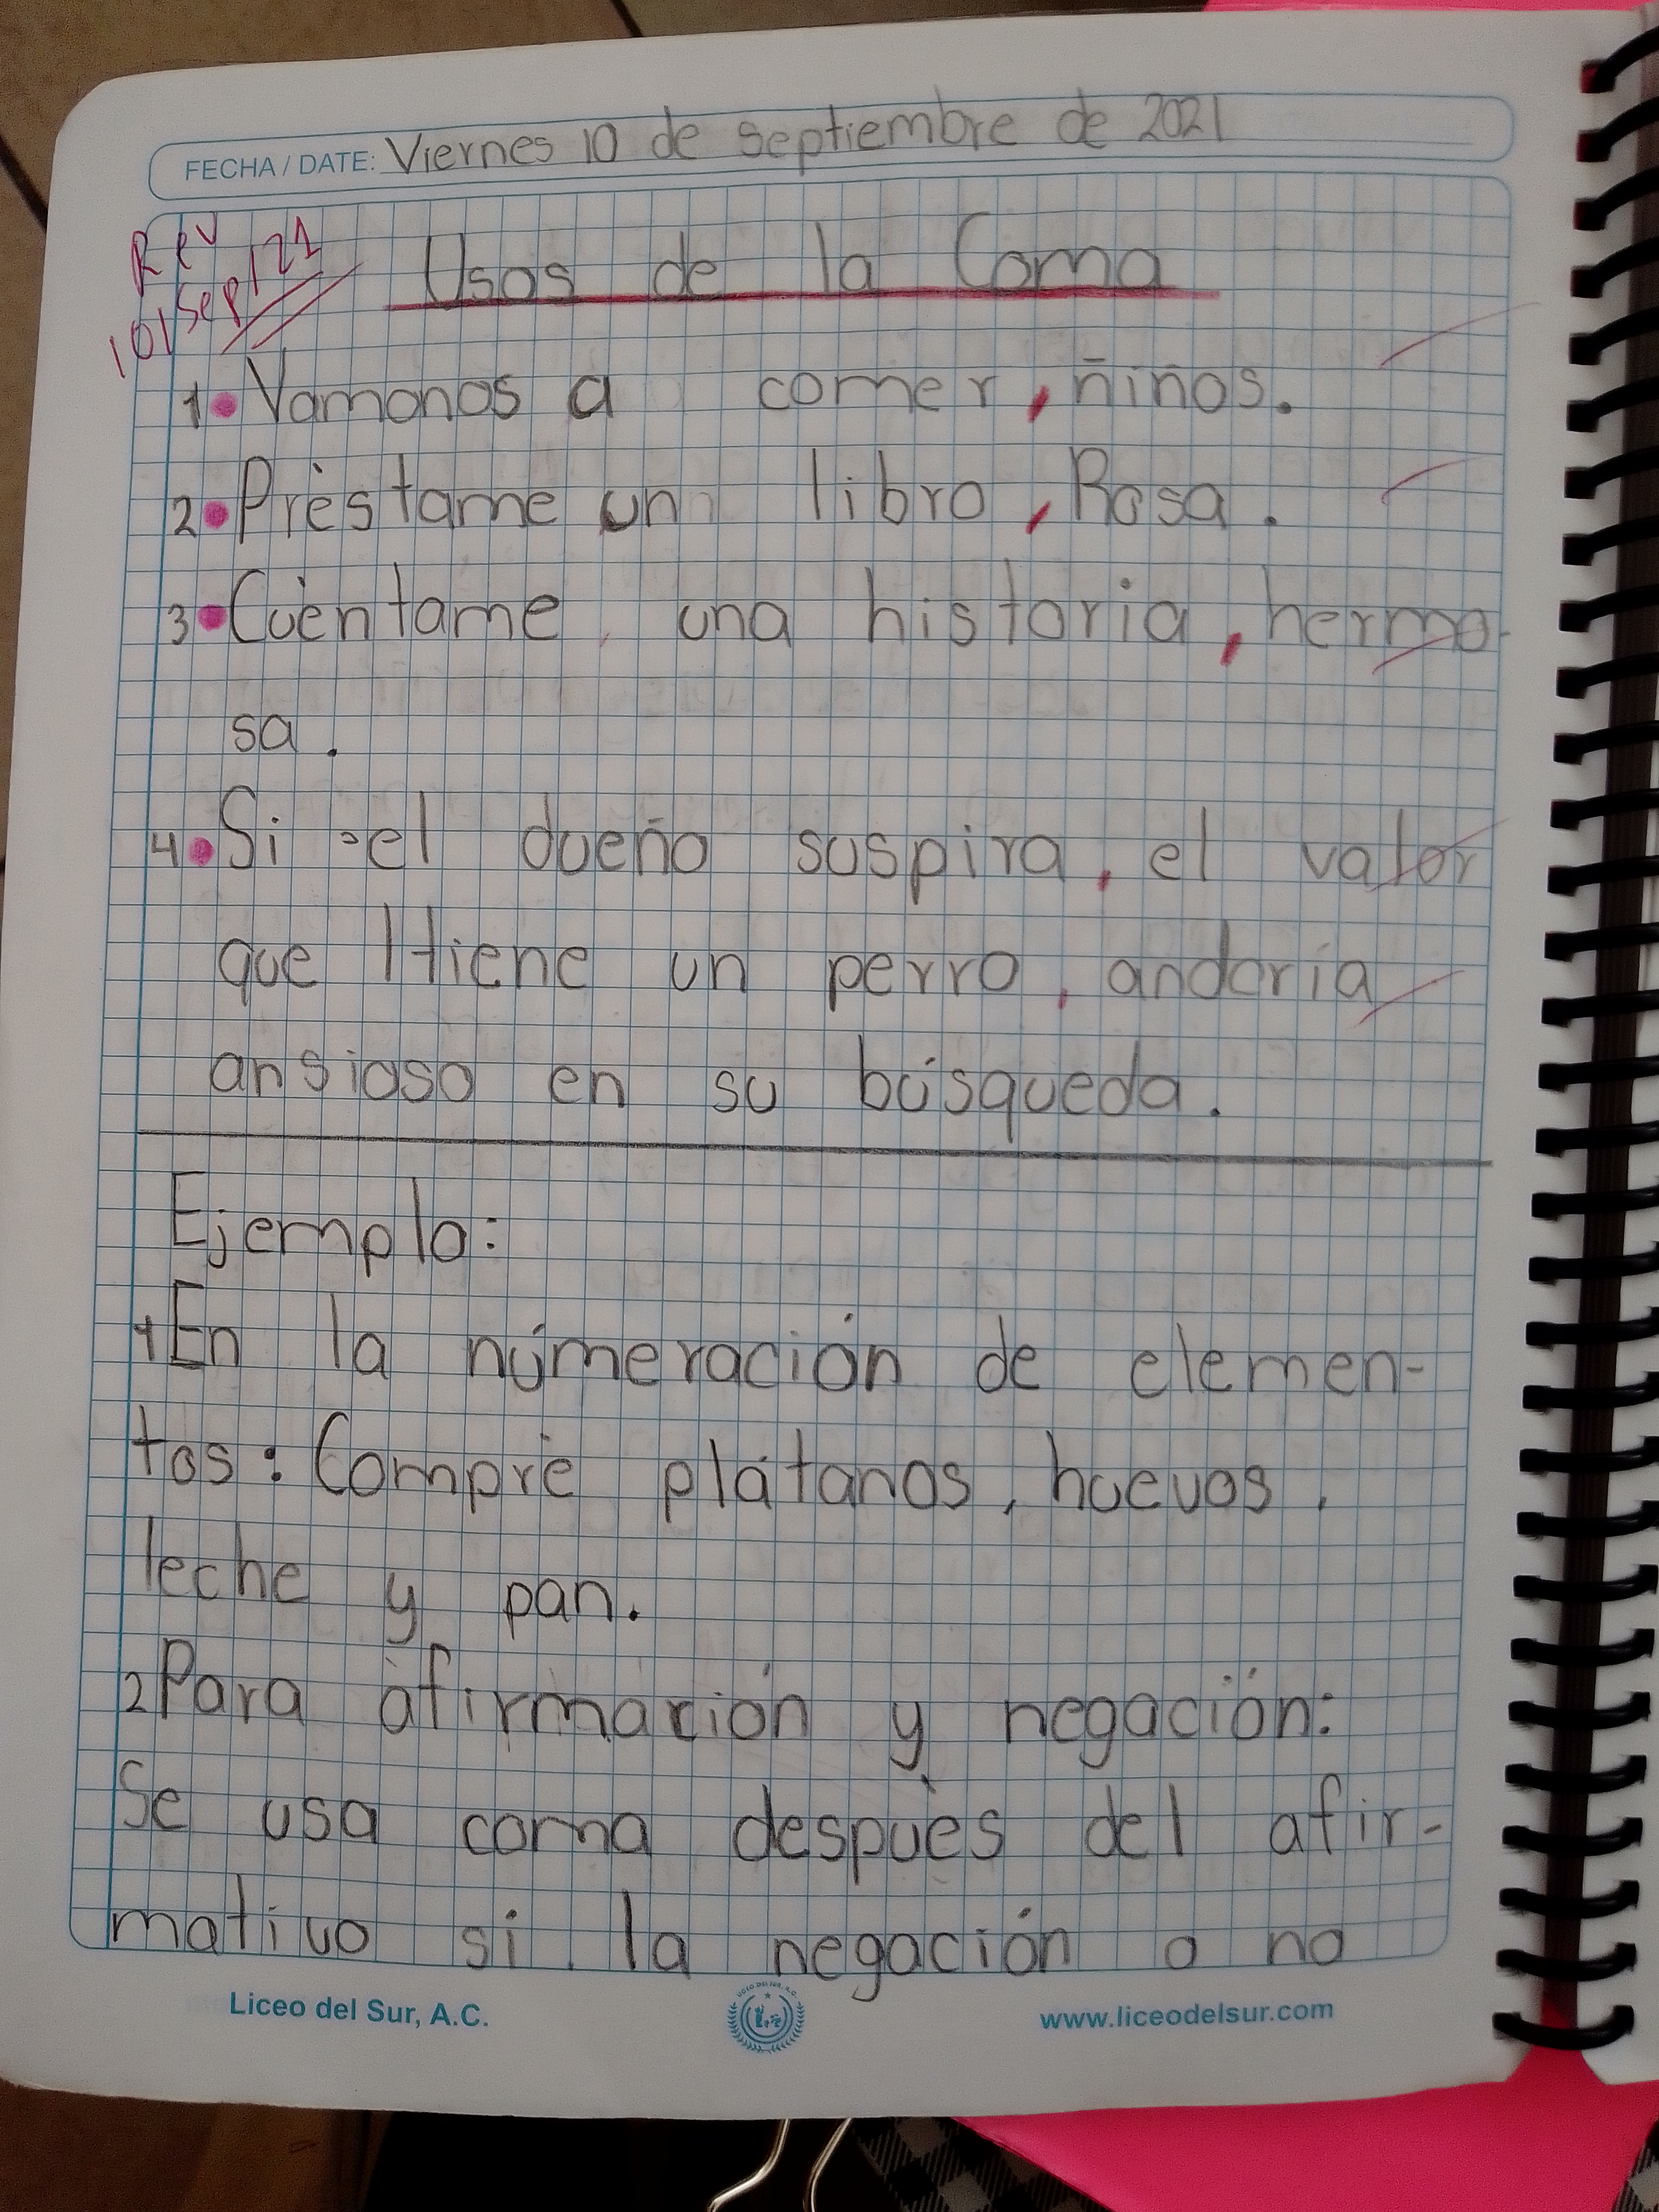 FECHA / DATE: Viernes 10 de septiembre de 2021
Rev
10/sep/21
Usos de la Coma
1. Vamonos a comer, niños.
2. Prèstame un libro, Rosa.
3. Cuèntame una historia, hermo-
sa.
4. Si el dueño suspira, el valor
que tiene un perro, andaría
ansioso en su búsqueda.
Ejemplo:
1 En la númeración de elemen-
tos: Comprè plátanos, huevos,
leche y pan.
2 Para afirmación y negación:
Se usa coma despuès del afir-
mativo si la negación o no
Liceo del Sur, A.C.
www.liceodelsur.com